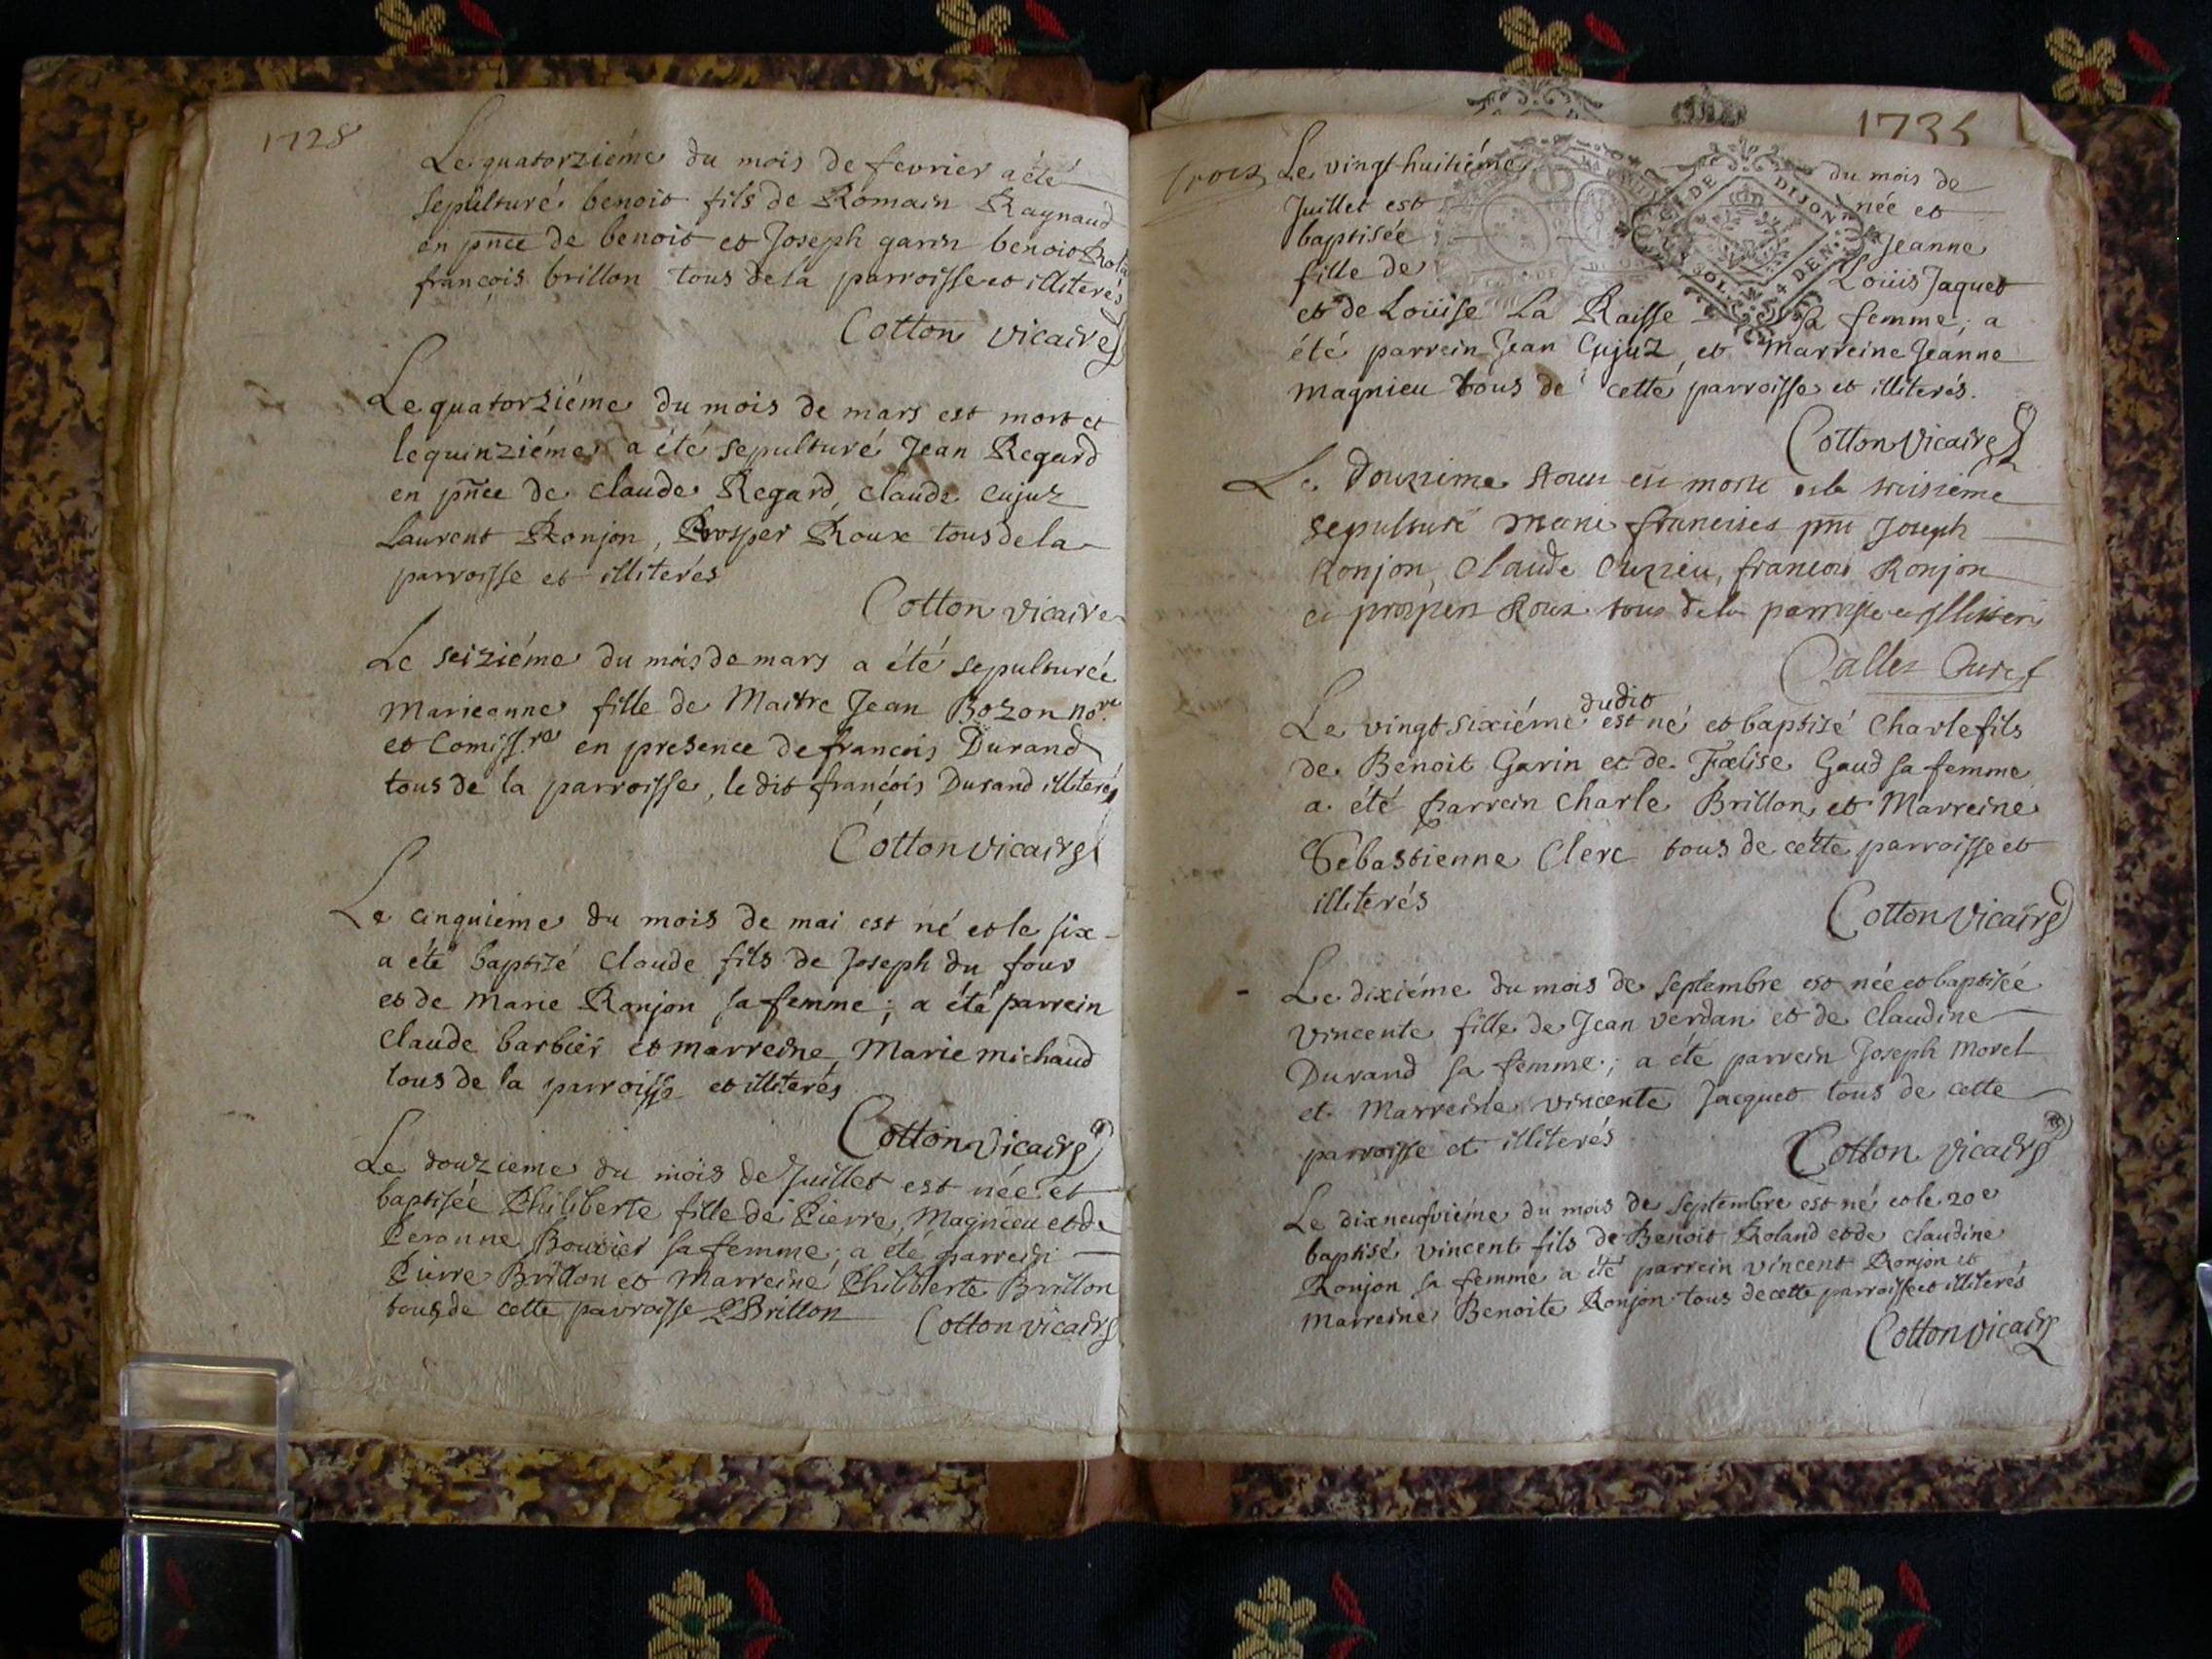 1728
Le quatorziéme du mois de fevrier a été
sepulturé benoit fils de Romain Raynaud
en pnce de benoit et Joseph garin benoit
françois brillon tous de la parroisse et illiterés
Cotton vicaire
Le quatorziéme du mois de mars est mort et
le quinziéme a été sepulturé Jean Regard
en pnce de claude Regard, claude cujuz
Laurent Ronjon, Prosper Roux tous de la
parroisse et illiterés
Cotton vicaire
Le seiziéme du mois de mars a été sepulturée
Marieanne fille de Maitre Jean Bozon nore
et Comiss.re en presence de françois Durand
tous de la parroisse, le dit françois Durand illiteré
Cotton vicaire
Le cinquieme du mois de mai est né et le six
a été baptisé Claude fils de Joseph du four
et de Marie Ronjon sa femme; a été parrein
Claude barbier et marreine Marie michaud
tous de la parroisse et illiterés
Cotton vicaire
Le douzieme du mois de Juillet est née et
baptisée Philiberte fille de Pierre Magnieu et de
Peronne Bouvier sa femme; a été parrein
Pierre Brillon et Marreine Philiberte Brillon
tous de cette parroisse PBrillon
Cotton vicaire
1735
Le vingt-huitiéme du mois de
Juillet est née et
baptisée Jeanne
fille de Loüis Jaquet
et de Loüise La Raisse sa femme; a
été parrein Jean Cujuz, et Marreine Jeanne
magnieu tous de cette parroisse et illiterés.
GE DE DIJON
SOL. 4 DEN.
Cotton vicaire
Le douzime aoust est morte et le treisiéme
sepulturé marie francoises pnt Joseph
Ronjon, Claude Cuzieu, francois Ronjon
et prosper Roux tous de la parroisse et illiteré
Curé
Le vingt sixiéme dudit est né et baptisé Charle fils
de Benoit Garin et de Fœlise Gaud sa femme
a été parrein Charle Brillon et Marreine
Sébastienne Clerc tous de cette parroisse et
illiterés
Cotton vicaire
Le dixiéme du mois de Septembre est née et baptisée
Vincente fille de Jean verdan et de Claudine
Durand sa femme; a été parrein Joseph Morel
et Marreine vincente Jacquet tous de cette
parroisse et illiterés
Cotton vicaire
Le dixneufviéme du mois de Septembre est né et le 20e
baptisé vincent fils de Benoit Roland et de Claudine
Ronjon sa femme a été parrein vincent Ronjon et
Marreine Benoite Ronjon tous de cette parroisse et illiterés
Cotton vicaire